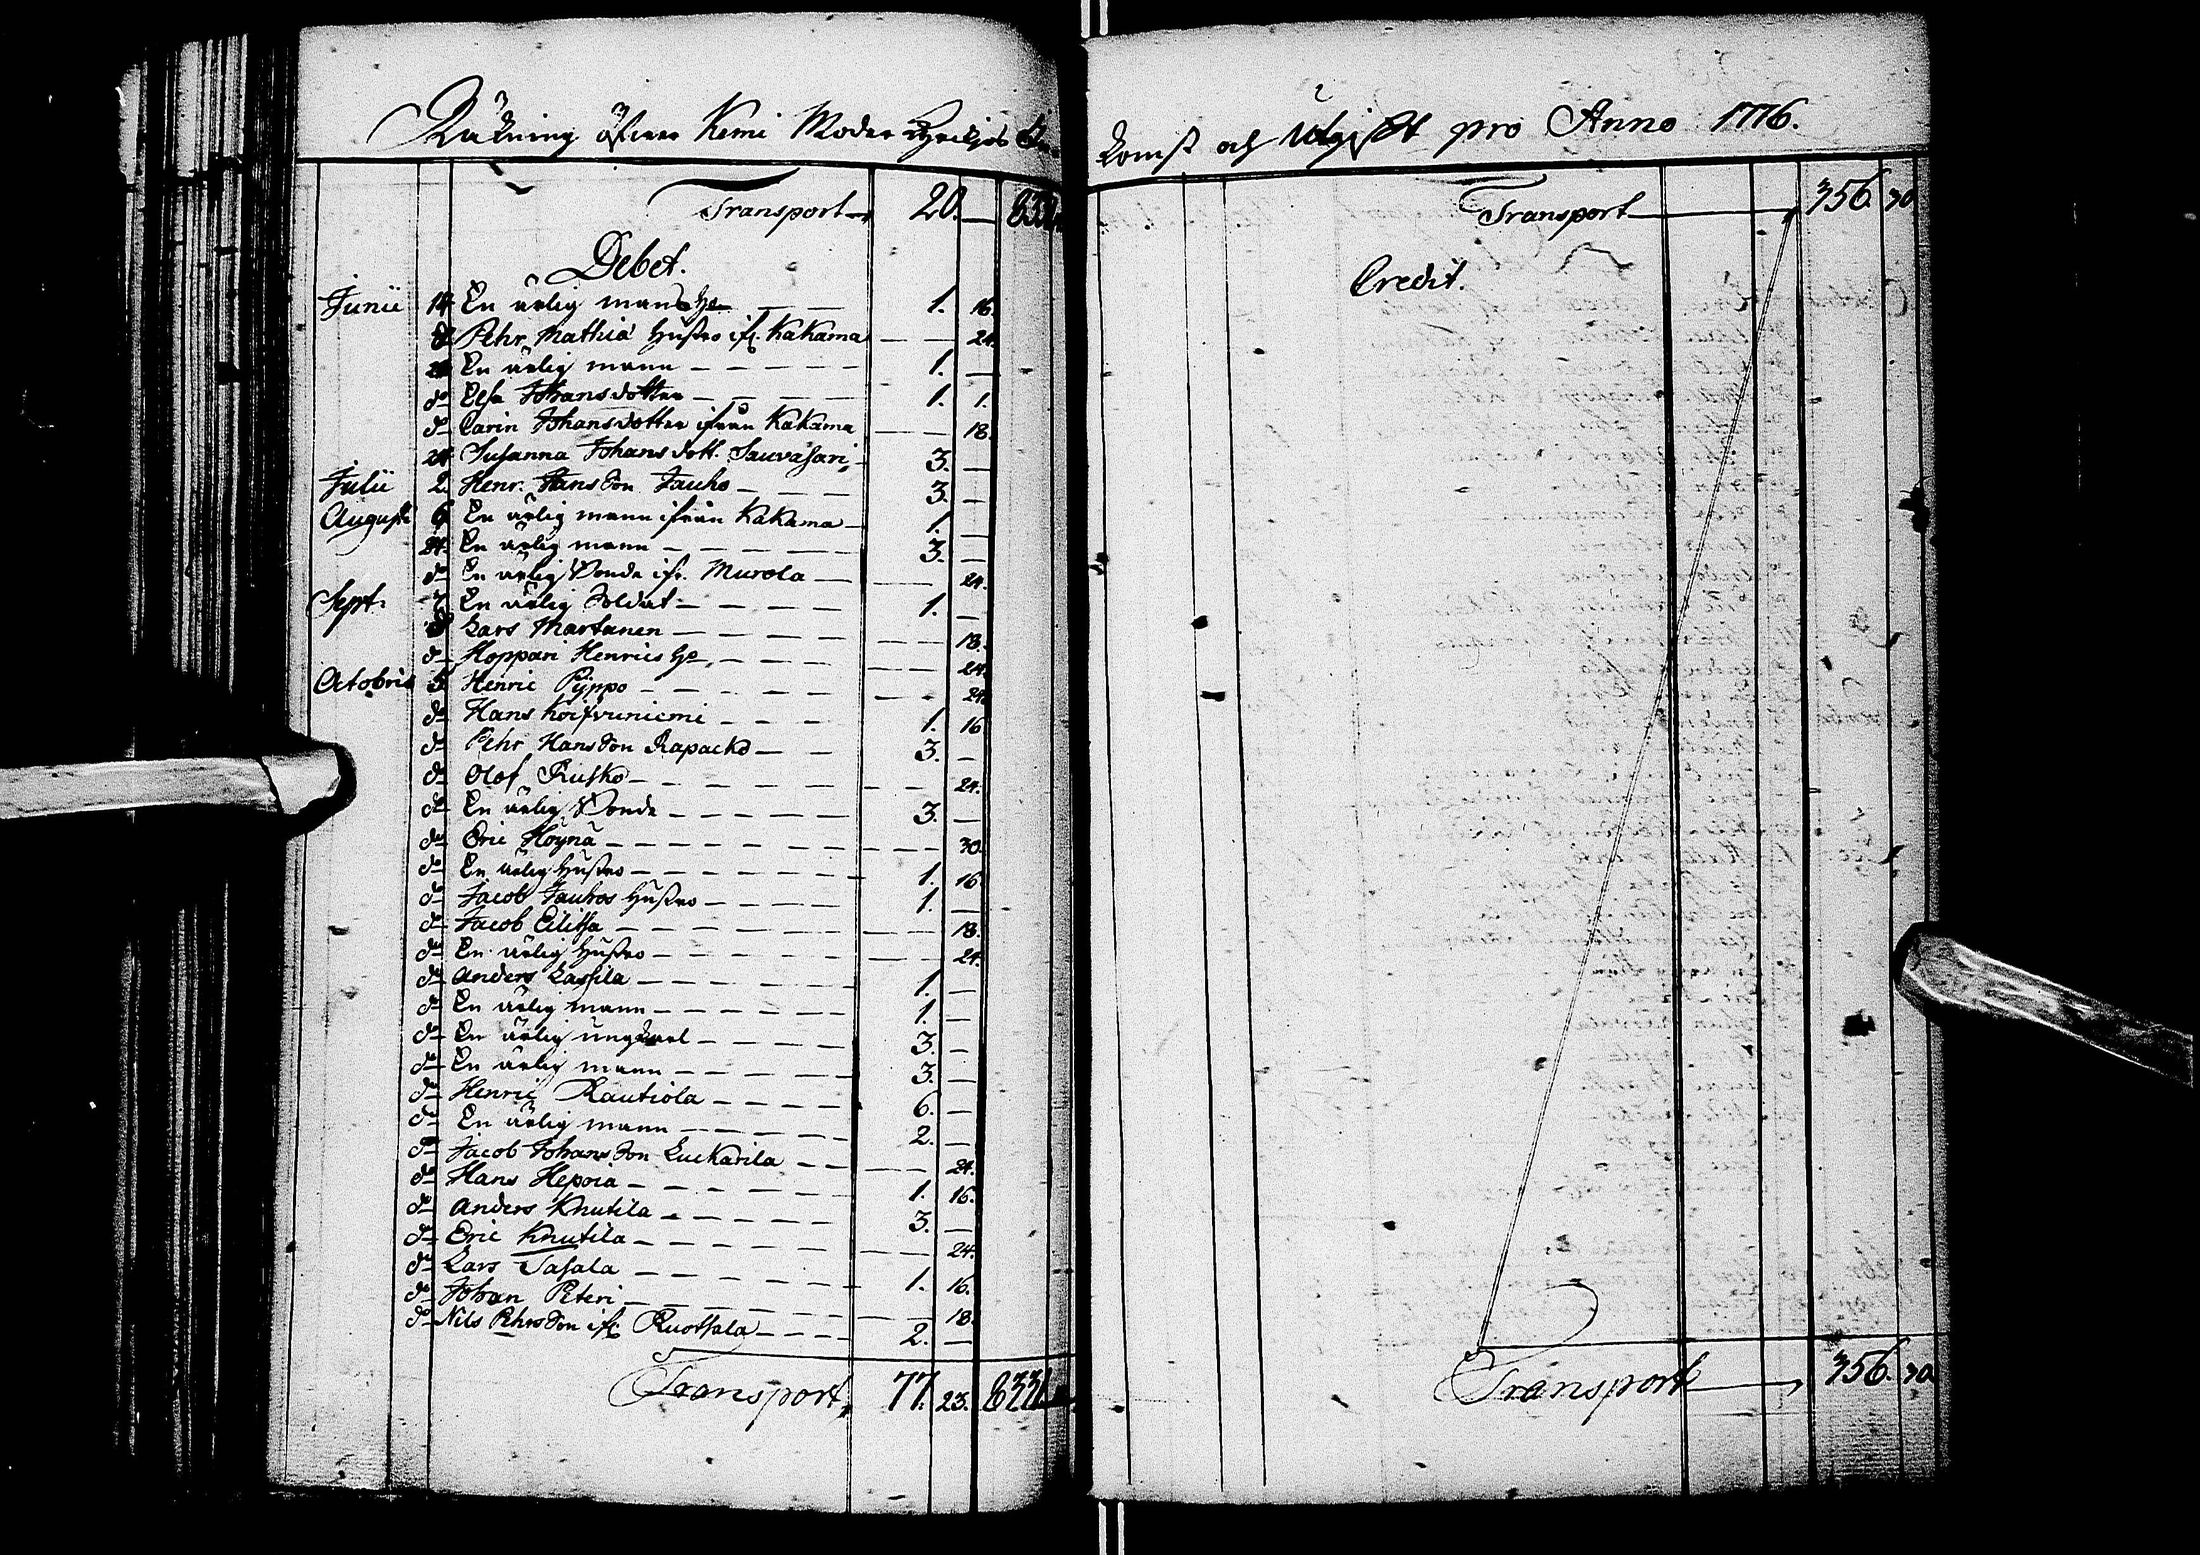 Räkning öfwer Kemi Moder Kyrckjos In-
Transport 20. — 832
Debet.
Junii 14 En ärlig mans H:o — 1. 16.
d:o Pehr Mathiæ Hustro ifr. Kakama — 24.
En ärlig mann — 1. —
d:o Elsa Johansdotter — 1. 1.
d:o Carin Johansdotter ifrån Kakama — 18.
24 Susanna Johansdott. Sauvasari 3. —
Julii 2. Henr. Hansson Jauho — 3. —
Augusti 6 En ärlig mann ifrån Kakama — 1. —
24. En ärlig mann — 3. —
d:o En ärlig Bonde ifr. Murola — 24.
Sept. 7 En ärlig Soldat — 1. —
Lars Martanen — 18.
d:o Hoppari Henrics H:o — 24.
Octobris 5 Henric Pÿppo — 24.
d:o Hans Koifvuniemi — 1. 16
d:o Pehr Hansson Rapacko — 3. —
d:o Olof Rusko — 24.
d:o En ärlig Bonde — 3. —
d:o Eric Höynä — 30.
d:o En ärlig Hustro — 1. 16.
d:o Jacob Jauhos Hustro — 1. —
d:o Jacob Eilitta — 18.
d:o En ärlig Hustro — 24.
d:o Anders Lassila — 1. —
d:o En ärlig mann — 1. —
d:o En ärlig ungkarl — 3. —
d:o En ärlig mann — 3. —
d:o Henric Rautiola — 6. —
d:o En ärlig mann — 2. —
d:o Jacob Johansson Luckarila — 24.
d:o Hans Hepoia — 1. 16.
d:o Anders Knutila — 3. —
d:o Eric Knutila — 24.
d:o Lars Tasala — 1. 16.
d:o Johan Peteri — 18.
d:o Nils Pehrsson ifr. Ruottala — 2. —
Transport, 77. 23. 832
komst och Utgift pro Anno 1776.
Transport 356. 30
Credit.
Transport 356. 30